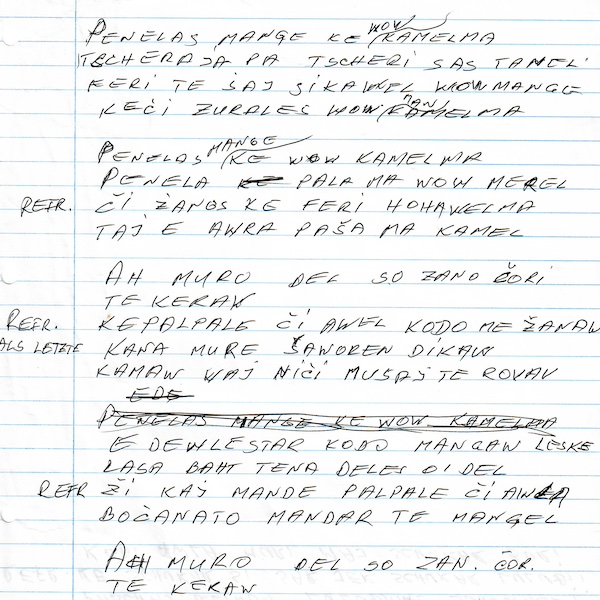 PENELAS MANGE KE WOW KAMELMA
TSCHERAJA PA TSCHERI SAS TAMEL
FERI TE ŠAJ SIKAWEL WOW MANGE
KEČI ZURALES WOW MAN KAMELMA
PENELAS MANGE KE WOW KAMELMA
PENELA KE PALA MA WOW MEREL
REFR. ČI ŽANGS KE FERI HOHAWELMA
TAJ E AWRA PAŠA MA KAMEL
AH MURO DEL SO ŽANO ČORI
TE KERAW
REFR. KE PALPALE ČI AWEL KODO ME ŽANAW
ALS LETZTE KANA MURE ŠAWOREN DIKAW
KAMAW WAJ NIČI MUSAJ TE ROVAV
EDE
PENELAS MANGE KE WOW KAMELMA
E DEWLESTAR KODO MANGAW LESKE
LASA BAHT TENA DELES O' DEL
REFR ŽI KAJ MANDE PALPALE ČI
BOČANATO MANDAR TE MANGEL
AH MURO DEL SO ŽAN. ČOR.
TE KERAW